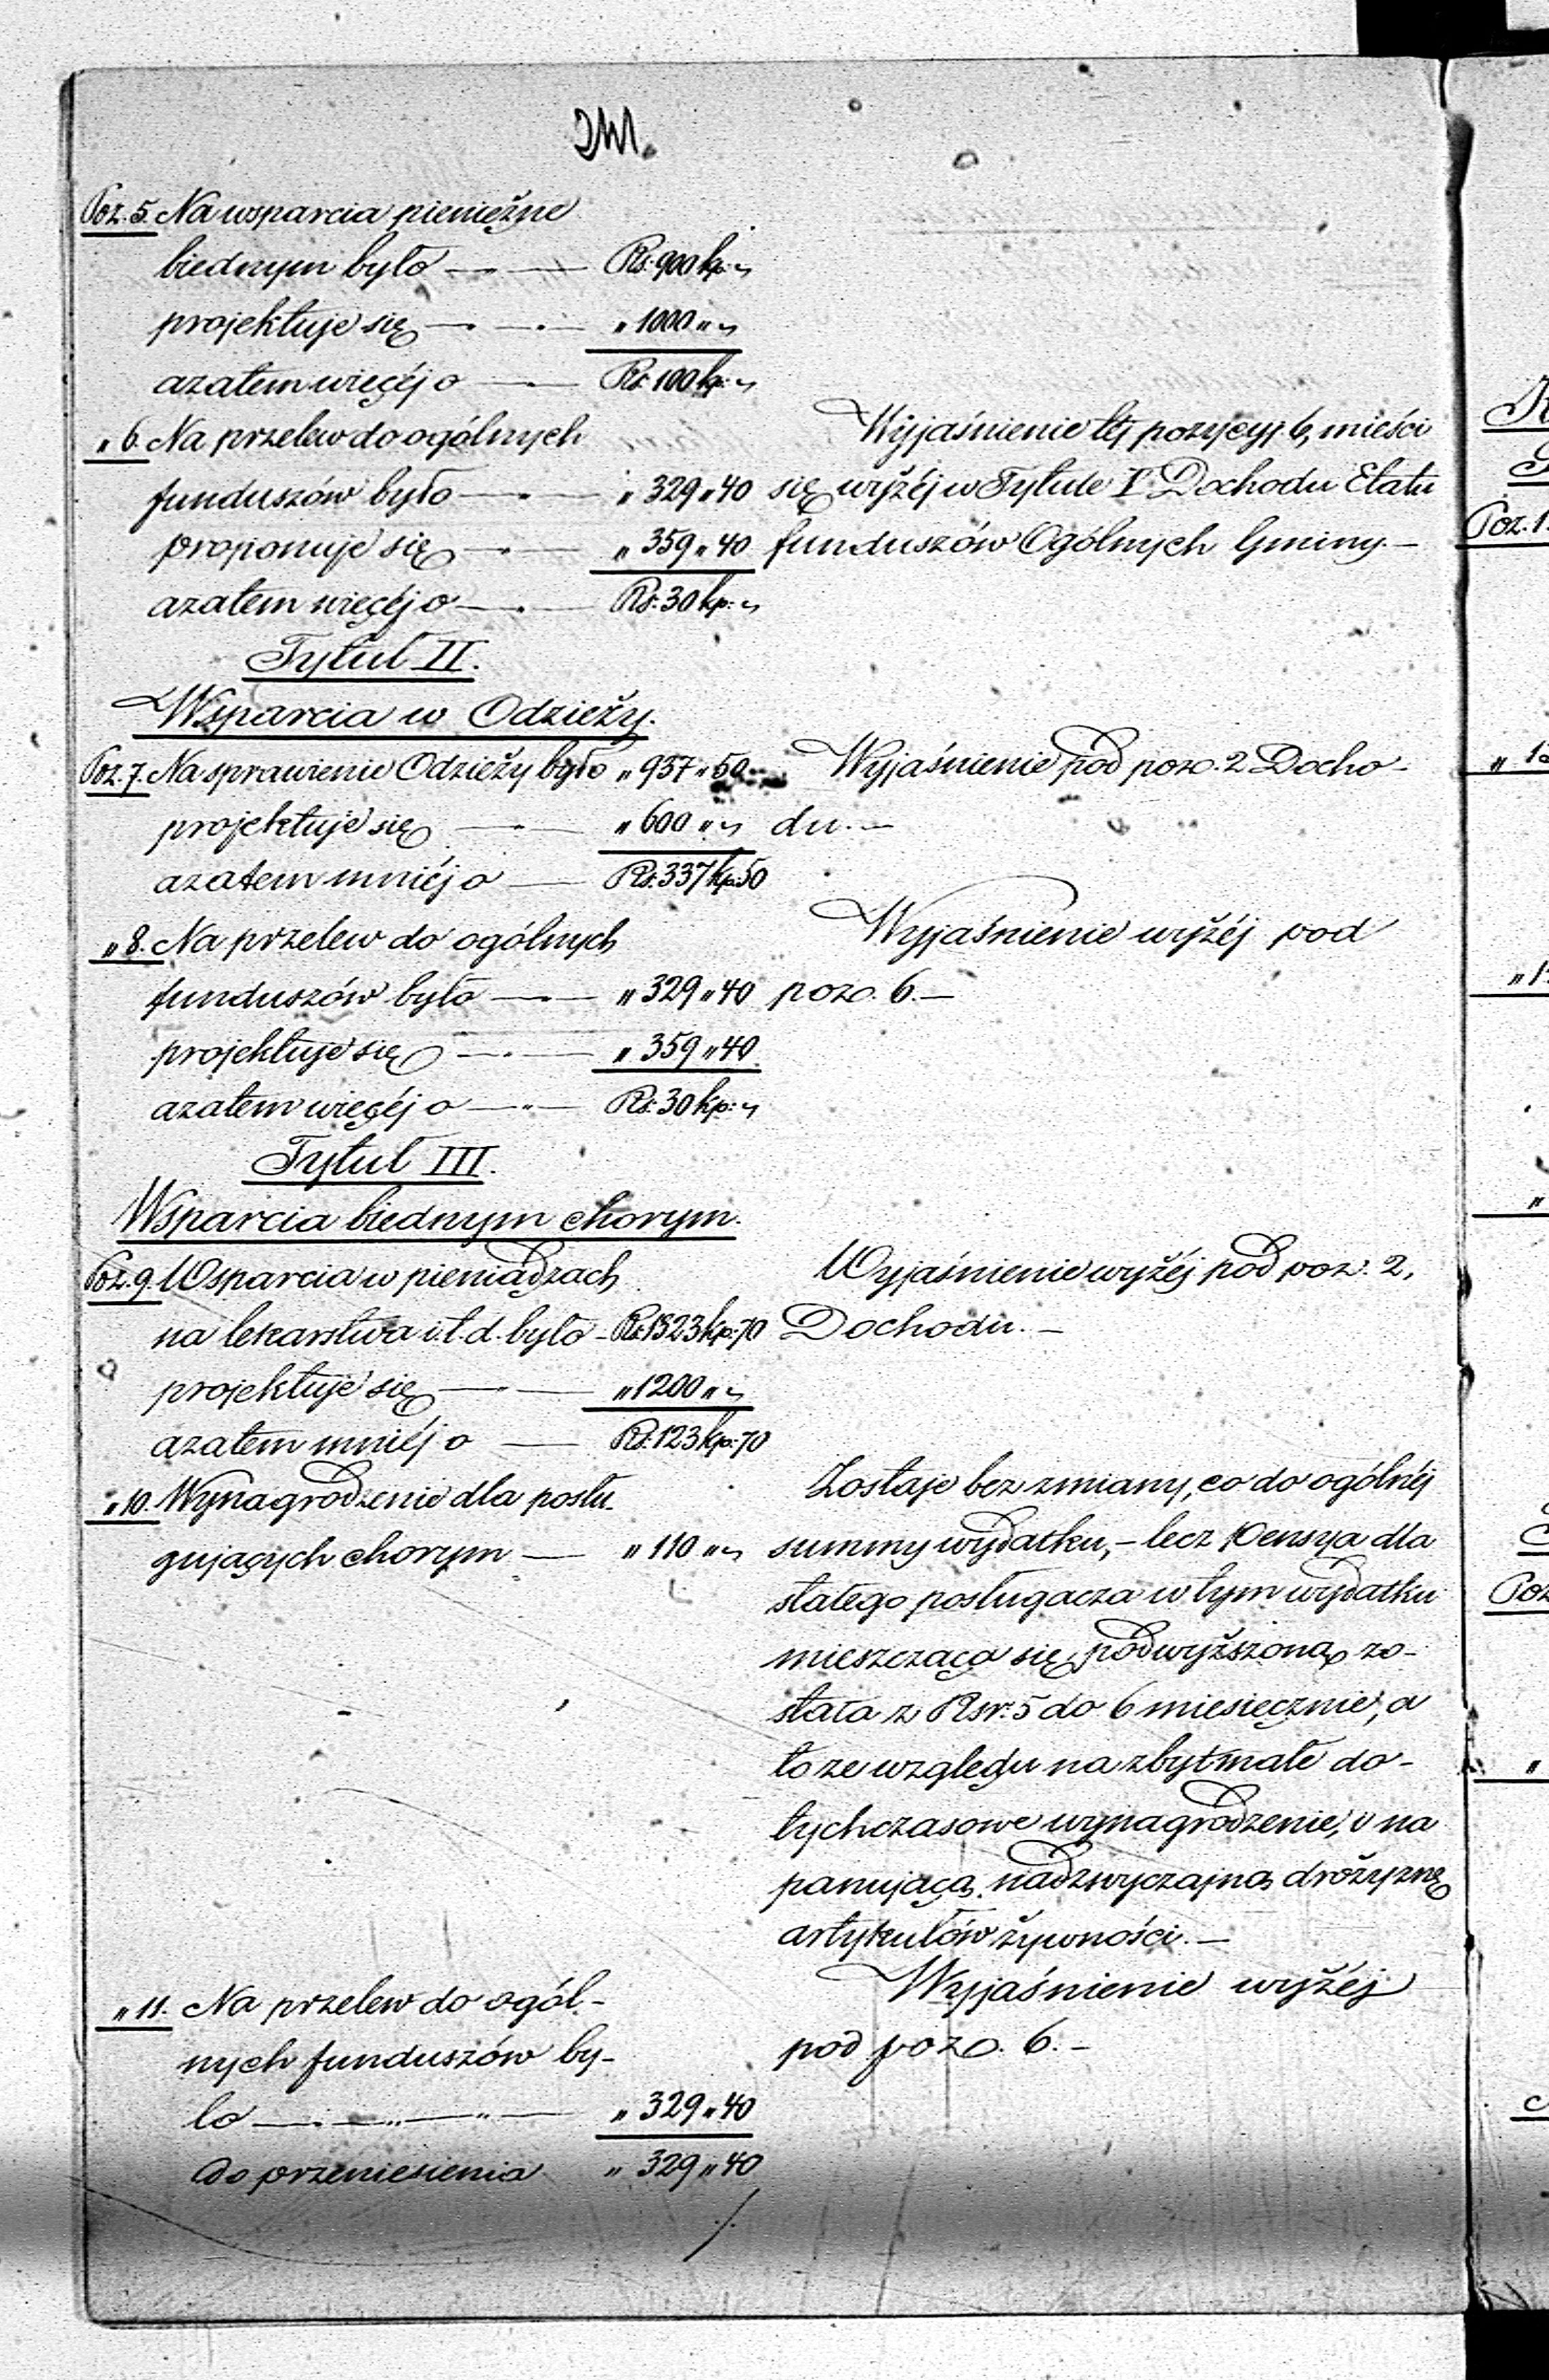 Poz. 5. Na wsparcia pieniężne
biednym było — Rs. 900 kp. „
projektuje się — „ 1000 „ „
azatem więcéj o — Rs. 100 kp. „
„ 6. Na przelew do ogólnych
funduszów było — „ 329 „ 40
proponuje się — „ 359 „ 40
azatem więcéj o — Rs. 30 kp. „
Wyjaśnienie téj pozycyi 6, mieści
się wyżéj w Tytule I Dochodu Etatu
funduszów Ogólnych Gminy. —
Tytuł II.
Wsparcia w Odzieży.
Poz. 7. Na sprawienie Odzieży było „ 937 „ 50
projektuje się — „ 600 „ „
azatem mniéj o — Rs. 337 kp. 50
Wyjaśnienie pod poz. 2 Docho-
du. —
„ 8. Na przelew do ogólnych
funduszów było — „ 329 „ 40
projektuje się — „ 359 „ 40
azatem więcéj o — Rs. 30 kp. „
Wyjaśnienie wyżéj pod
poz. 6. —
Tytuł III.
Wsparcia biednym chorym.
Poz. 9. Wsparcia w pieniądzach
na lekarstwa i t. d. było — Rs. 1323 kp. 70
projektuje się — „ 1200 „ „
azatem mniéj o — Rs. 123 kp. 70
Wyjaśnienie wyżéj pod poz. 2,
Dochodu. —
„ 10. Wynagrodzenie dla posłu-
gujących chorym — „ 110 „ „
Zostaje bez zmiany, co do ogólnéj
summy wydatku, — lecz pensya dla
stałego posługacza w tym wydatku
mieszcząca się, podwyższoną zo-
stała z Rsr. 5 do 6 miesięcznie, a
to ze względu na zbyt małe do-
tychczasowe wynagrodzenie, i na
panującą nadzwyczajną drożyznę
artykułów żywności. —
„ 11. Na przelew do ogól-
nych funduszów by-
ło — „ 329 „ 40
do przeniesienia „ 329 „ 40
Wyjaśnienie wyżéj
pod poz. 6. —
Poz. 1